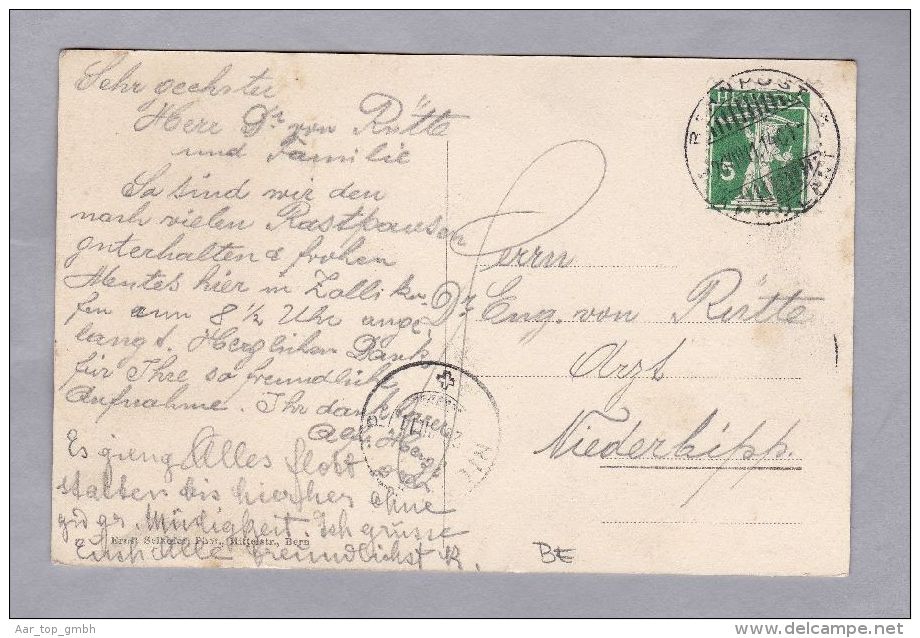 Sehr geehrter
Herr Dr von Rütte
und Familie
So sind wir den
nach vielen Rastpausen
guterhalten & frohen
Mutes hier in Zolliko-
fen um 8 1/2 Uhr ange-
langt. Herzlichen Dank
für Ihre so freundliche
Aufnahme. Ihr dankbarer
Es gieng Alles flott
statten bis hierher ohne
Müdigkeit. Ich grüsse
Euch Alle freundlichst R.
Ernst Selhofer, Phot., Mittelstr., Bern
BAHNPOST
5
Herrn
Dr. Eug. von Rütte
Arzt
Niederbipp.
BE
Aar_top_gmbh
delcampe.net